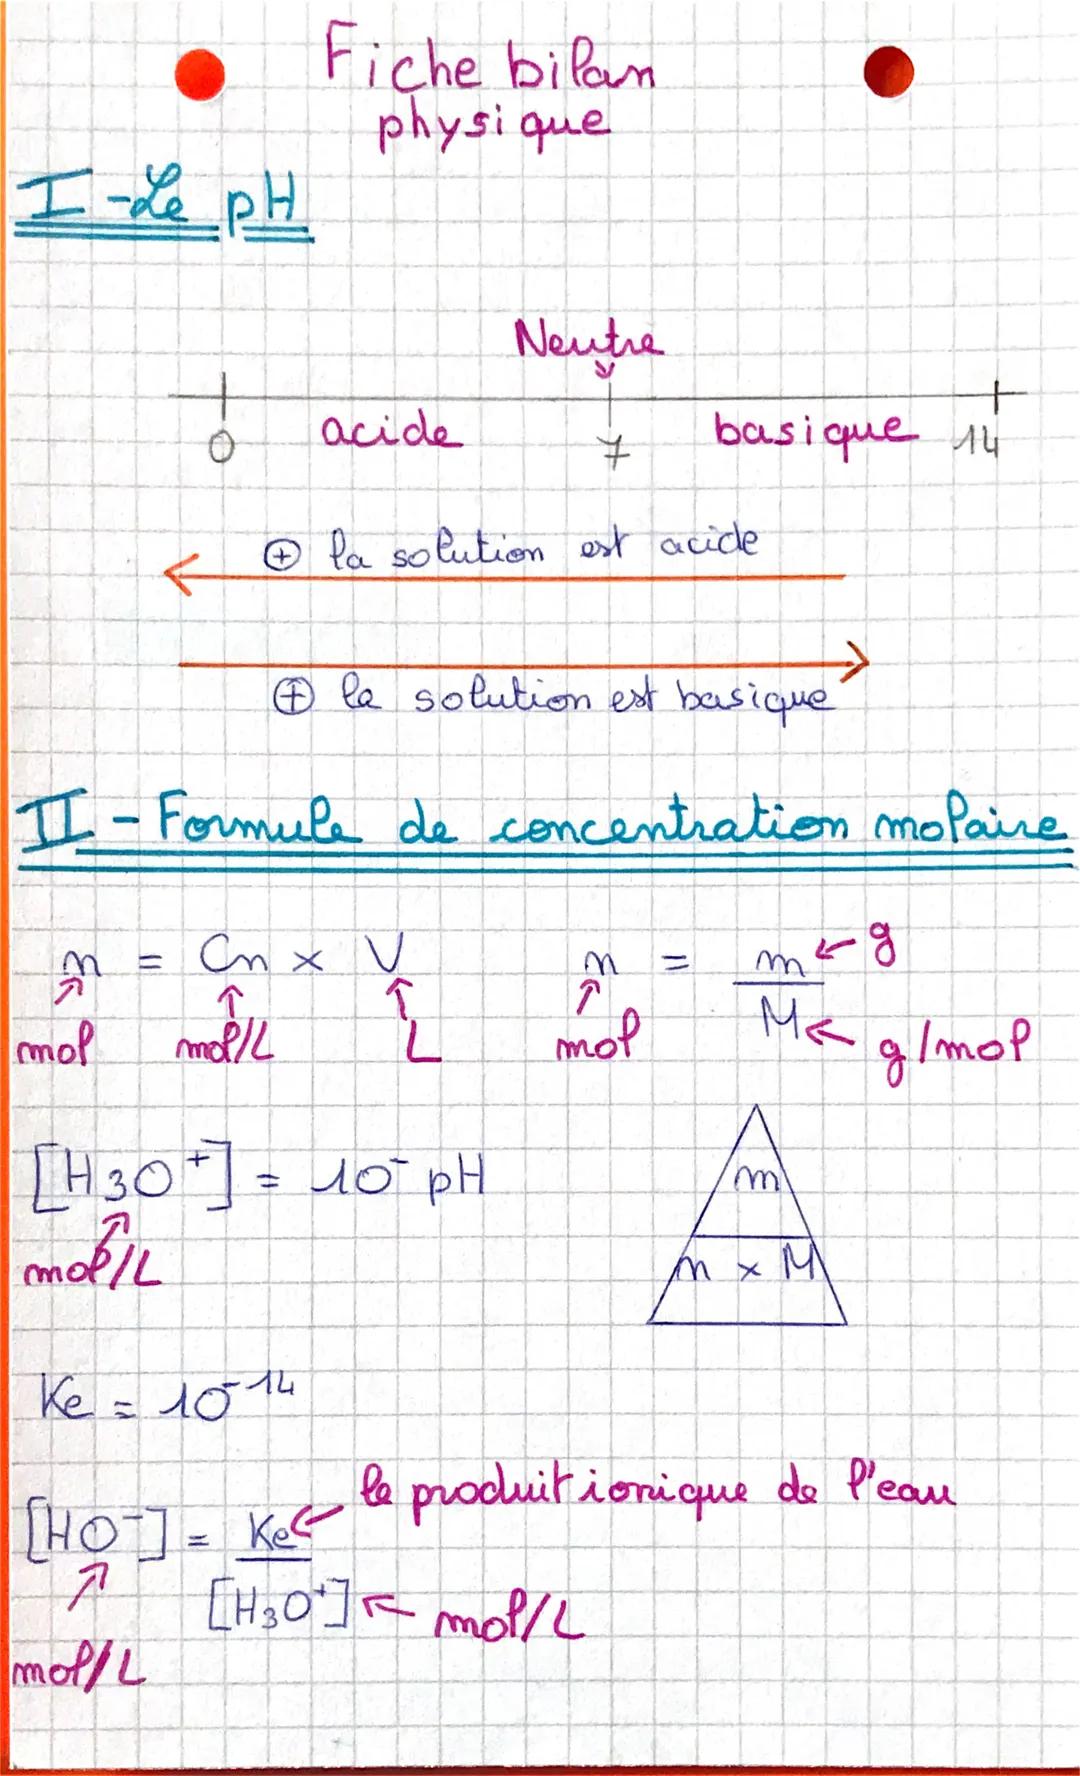 Fiche bilan
physique
I - Le pH
Neutre
0 acide 7 basique 14
⊕ la solution est acide
⊕ la solution est basique
II - Formule de concentration molaire
n = Cn × V n = m / M ← g
mol mol/L L mol g/mol
[H3O⁺] = 10⁻ pH
mol/L
m
n × M
Ke = 10⁻¹⁴
le produit ionique de l'eau
[HO⁻] = Ke / [H₃O⁺] ← mol/L
mol/L